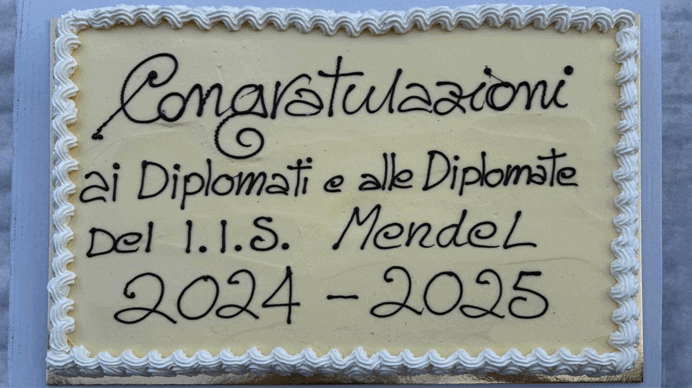 Congratulazioni
ai Diplomati e alle Diplomate
Del I.I.S. Mendel
2024 - 2025